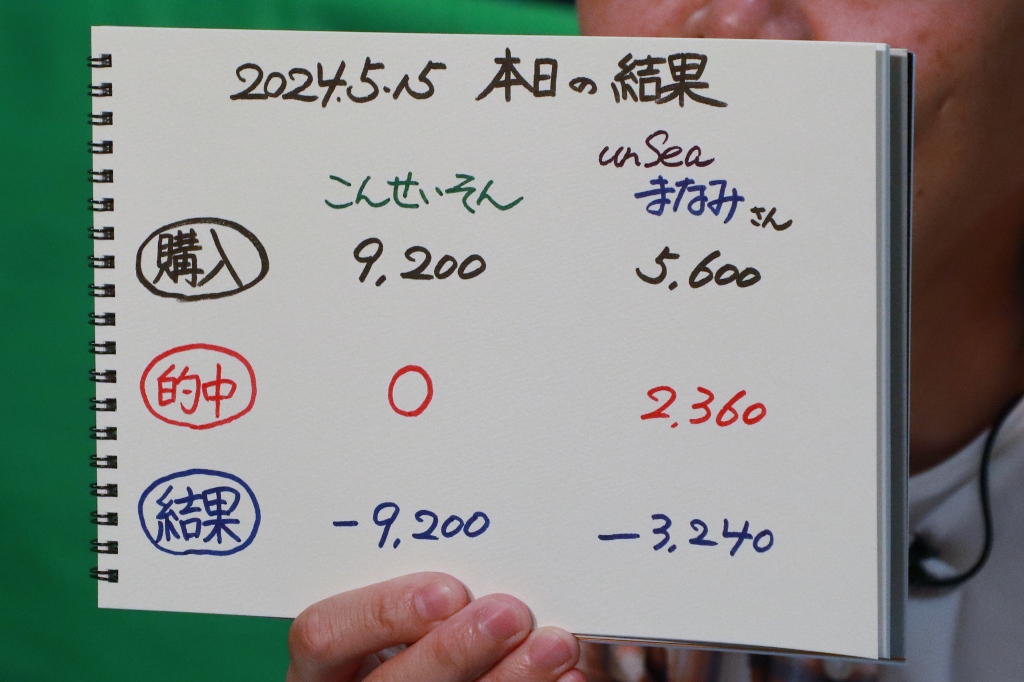 2024.5.15 本日の結果
unSea
こんせいそん まなみさん
購入 9,200 5,600
的中 0 2,360
結果 -9,200 -3,240